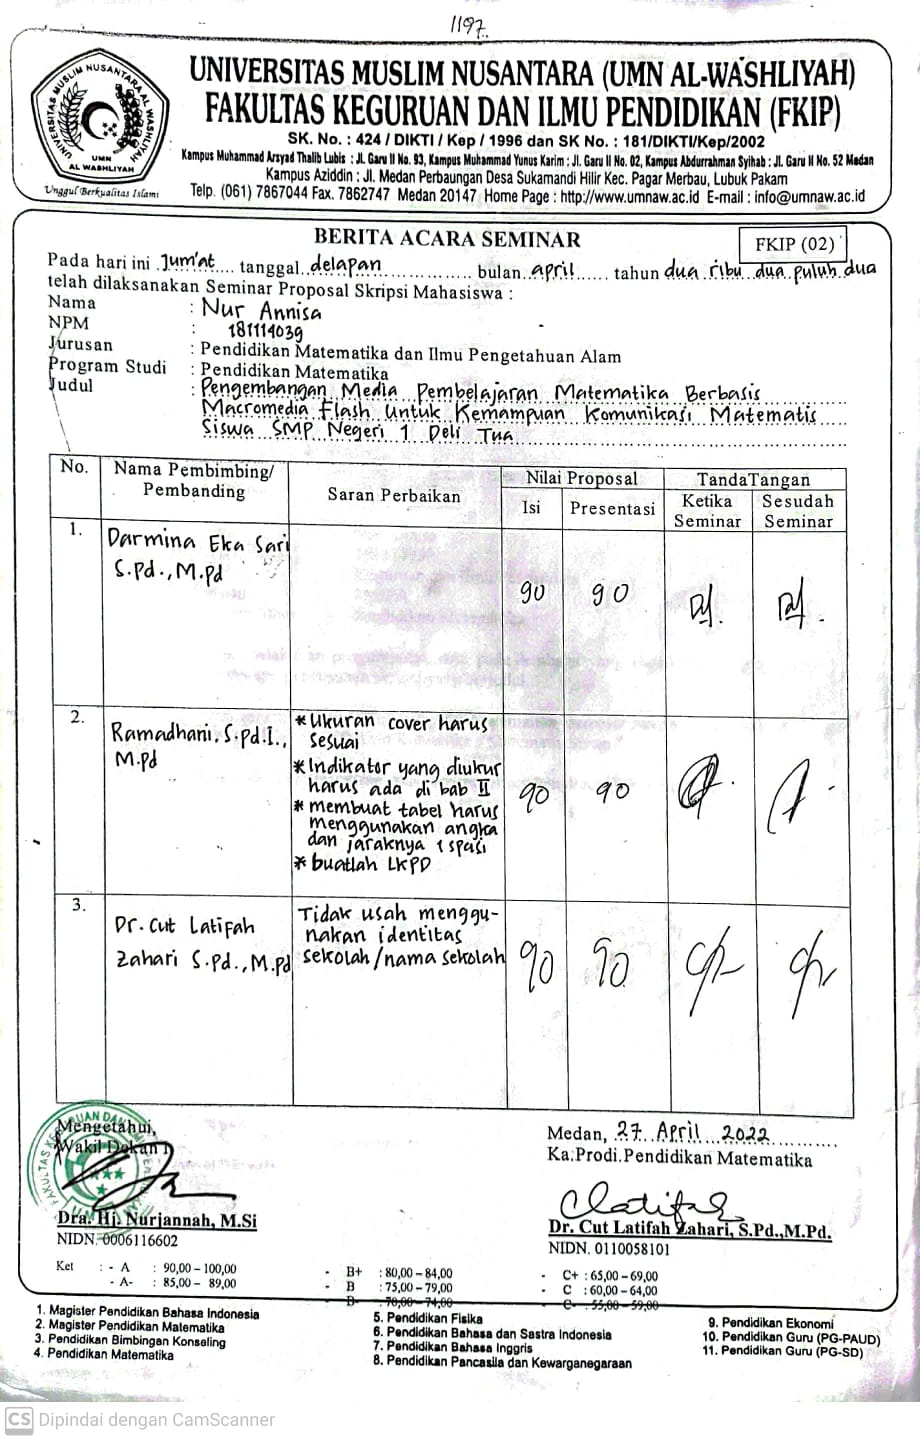 1197
UNIVERSITAS MUSLIM NUSANTARA AL WASHLIYAH
UMN
AL WASHLIYAH
Unggul Berkualitas Islami
UNIVERSITAS MUSLIM NUSANTARA (UMN AL-WASHLIYAH)
FAKULTAS KEGURUAN DAN ILMU PENDIDIKAN (FKIP)
SK. No. : 424 / DIKTI / Kep / 1996 dan SK No. : 181/DIKTI/Kep/2002
Kampus Muhammad Arsyad Thalib Lubis : Jl. Garu II No. 93, Kampus Muhammad Yunus Karim : Jl. Garu II No. 02, Kampus Abdurrahman Syihab : Jl. Garu II No. 52 Medan
Kampus Aziddin : Jl. Medan Perbaungan Desa Sukamandi Hilir Kec. Pagar Merbau, Lubuk Pakam
Telp. (061) 7867044 Fax. 7862747 Medan 20147 Home Page : http://www.umnaw.ac.id E-mail : info@umnaw.ac.id
BERITA ACARA SEMINAR
FKIP (02)
Pada hari ini Jum'at tanggal delapan bulan april tahun dua ribu dua puluh dua
telah dilaksanakan Seminar Proposal Skripsi Mahasiswa :
Nama : Nur Annisa
NPM : 181114039
Jurusan : Pendidikan Matematika dan Ilmu Pengetahuan Alam
Program Studi : Pendidikan Matematika
Judul : Pengembangan Media Pembelajaran Matematika Berbasis
Macromedia Flash Untuk Kemampuan Komunikasi Matematis
Siswa SMP Negeri 1 Deli Tua
No. Nama Pembimbing/ Pembanding Saran Perbaikan Nilai Proposal TandaTangan
Isi Presentasi Ketika Seminar Sesudah Seminar
1. Darmina Eka Sari
S.Pd., M.Pd
90 90
2. Ramadhani. S.Pd.I.,
M.Pd
* Ukuran cover harus
sesuai
* Indikator yang diukur
harus ada di bab II
* membuat tabel harus
menggunakan angka
dan jaraknya 1 spasi
* buatlah LKPD
90 90
3. Dr. Cut Latifah
Zahari S.Pd., M.Pd
Tidak usah menggu-
nakan identitas
sekolah/nama sekolah
90 90
Mengetahui,
Wakil Dekan I
Dra. Hj. Nurjannah, M.Si
NIDN. 0006116602
Medan, 27 April 2022
Ka.Prodi.Pendidikan Matematika
Clatifah
Dr. Cut Latifah Zahari, S.Pd.,M.Pd.
NIDN. 0110058101
Ket : - A : 90,00 – 100,00
- A- : 85,00 – 89,00
- B+ : 80,00 – 84,00
- B : 75,00 – 79,00
- B- : 70,00 – 74,00
- C+ : 65,00 – 69,00
- C : 60,00 – 64,00
- C- : 55,00 – 59,00
1. Magister Pendidikan Bahasa Indonesia
2. Magister Pendidikan Matematika
3. Pendidikan Bimbingan Konseling
4. Pendidikan Matematika
5. Pendidikan Fisika
6. Pendidikan Bahasa dan Sastra Indonesia
7. Pendidikan Bahasa Inggris
8. Pendidikan Pancasila dan Kewarganegaraan
9. Pendidikan Ekonomi
10. Pendidikan Guru (PG-PAUD)
11. Pendidikan Guru (PG-SD)
CS Dipindai dengan CamScanner